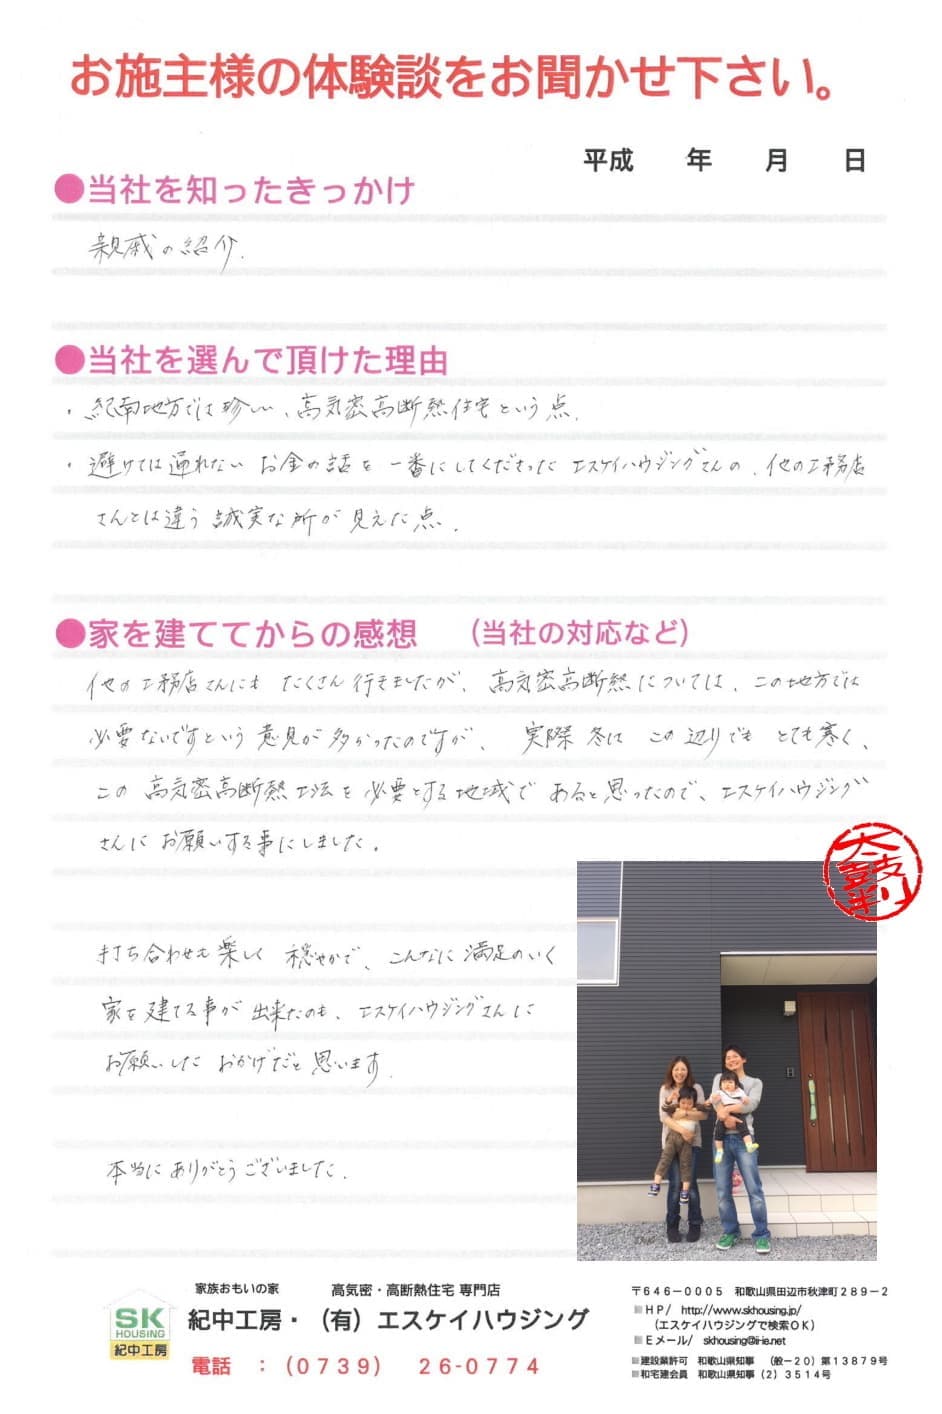 お施主様の体験談をお聞かせ下さい。
平成　　年　　月　　日
●当社を知ったきっかけ
親戚の紹介.
●当社を選んで頂けた理由
・紀南地方では珍しい、高気密高断熱住宅という点.
・避けては通れない お金の話を 一番にしてくださった エスケイハウジングさんの、他の工務店
さんとは違う 誠実な所が 見えた点.
●家を建ててからの感想　（当社の対応など）
他の工務店さんにも たくさん行きましたが、高気密高断熱については、この地方では
必要ないですという 意見が 多かったのですが、実際 冬は この辺りでも とても寒く、
この 高気密高断熱工法を 必要とする地域で あると思ったので、エスケイハウジング
さんに お願いする事にしました。
大鼓判
打ち合わせも 楽しく 穏やかで、こんなに 満足のいく
家を建てる事が 出来たのも、エスケイハウジングさんに
お願いした おかげだと 思います.
本当に ありがとうございました.
SK
HOUSING
紀中工房
家族おもいの家　高気密・高断熱住宅 専門店
紀中工房・（有）エスケイハウジング
電話　：（0739）　26-0774
〒646-0005　和歌山県田辺市秋津町289-2
HP/　http://www.skhousing.jp/
（エスケイハウジングで検索OK）
Eメール/　skhousing@ii-ie.net
建設業許可　和歌山県知事　（般-20）第13879号
和宅建会員　和歌山県知事（2）3514号